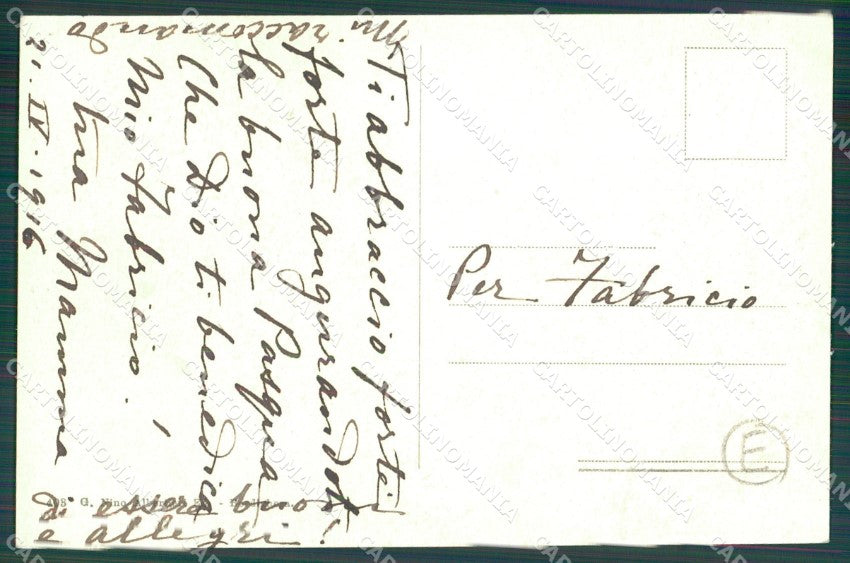 Ti abbraccio forte
forte augurandoti
la buona Pasqua!
Che Dio ti benedica
Mio Fabricio!
tua Mamma
21.IV.1916
Mi raccomando
di essere buoni
e allegri
Per Fabricio
E
CARTOLINOMANIA